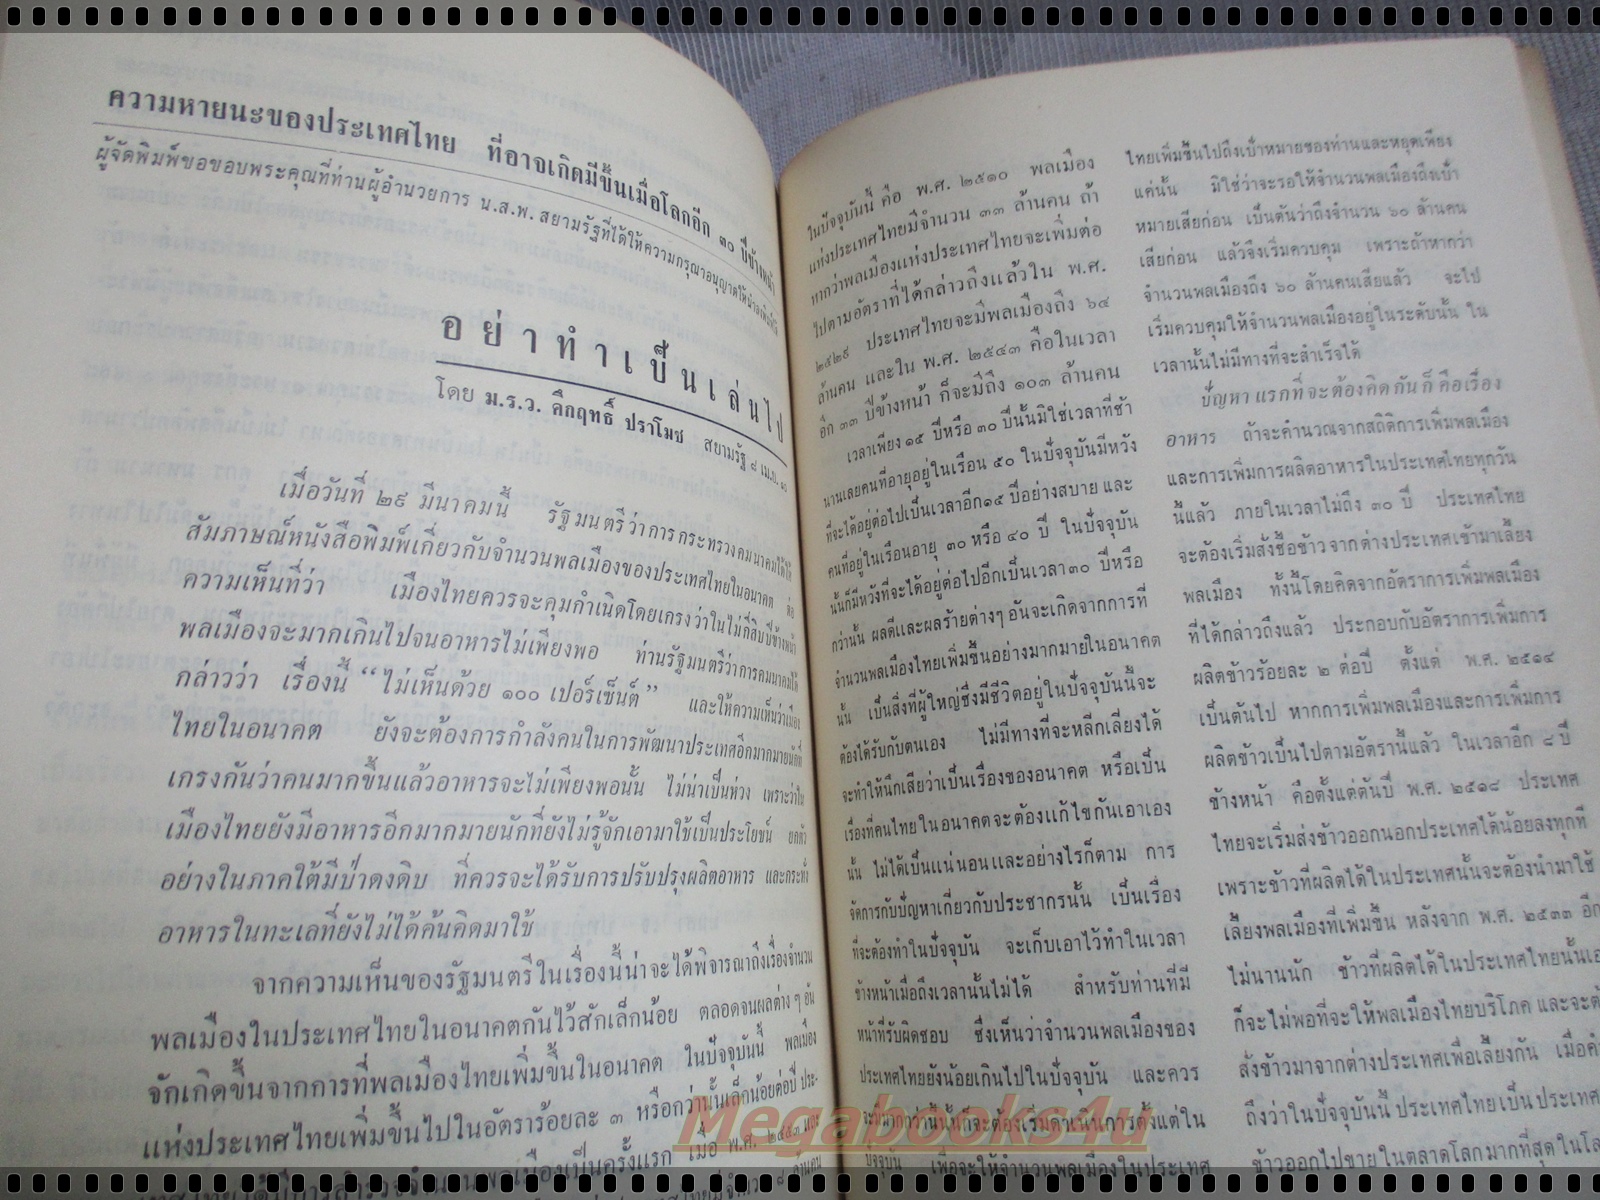 ความหายนะของประเทศไทย ที่อาจเกิดมีขึ้นเมื่อโลกอีก ๓๐ ปีข้างหน้า
ผู้จัดพิมพ์ขอขอบพระคุณที่ท่านผู้อำนวยการ น.ส.พ. สยามรัฐที่ได้ให้ความกรุณาอนุญาตให้นำลงพิมพ์ได้
อย่าทำเป็นเล่นไป
โดย ม.ร.ว. คึกฤทธิ์ ปราโมช สยามรัฐ ๘ เม.ย. ๑๐
เมื่อวันที่ ๒๙ มีนาคมนี้ รัฐมนตรีว่าการกระทรวงคมนาคมได้ให้
สัมภาษณ์หนังสือพิมพ์เกี่ยวกับจำนวนพลเมืองของประเทศไทยในอนาคต ต่อ
ความเห็นที่ว่า เมืองไทยควรจะคุมกำเนิดโดยเกรงว่าในไม่กี่สิบปีข้างหน้า
พลเมืองจะมากเกินไปจนอาหารไม่เพียงพอ ท่านรัฐมนตรีว่าการคมนาคมได้
กล่าวว่า เรื่องนี้ “ไม่เห็นด้วย ๑๐๐ เปอร์เซ็นต์” และให้ความเห็นว่าเมือง
ไทยในอนาคต ยังจะต้องการกำลังคนในการพัฒนาประเทศอีกมากมายนักที่
เกรงกันว่าคนมากขึ้นแล้วอาหารจะไม่เพียงพอนั้น ไม่น่าเป็นห่วง เพราะว่าใน
เมืองไทยยังมีอาหารอีกมากมายนักที่ยังไม่รู้จักเอามาใช้เป็นประโยชน์ ยกตัว
อย่างในภาคใต้มีป่าดงดิบ ที่ควรจะได้รับการปรับปรุงผลิตอาหาร และกระทั่ง
อาหารในทะเลที่ยังไม่ได้ค้นคิดมาใช้
จากความเห็นของรัฐมนตรีในเรื่องนี้น่าจะได้พิจารณาถึงเรื่องจำนวน
พลเมืองในประเทศไทยในอนาคตกันไว้สักเล็กน้อย ตลอดจนผลต่าง ๆ อัน
จักเกิดขึ้นจากการที่พลเมืองไทยเพิ่มขึ้นในอนาคต ในปัจจุบันนี้ พลเมือง
แห่งประเทศไทยเพิ่มขึ้นไปในอัตราร้อยละ ๓ หรือกว่านั้นเล็กน้อยต่อปี ประ-
เทศไทยได้มีการสำรวจจำนวนพลเมืองเป็นครั้งแรก เมื่อ พ.ศ. ๒๔๕๓ และ
ในปัจจุบันนี้ คือ พ.ศ. ๒๕๑๐ พลเมือง
แห่งประเทศไทยมีจำนวน ๓๓ ล้านคน ถ้า
หากว่าพลเมืองแห่งประเทศไทยจะเพิ่มต่อ
ไปตามอัตราที่ได้กล่าวถึงแล้วใน พ.ศ.
๒๕๒๙ ประเทศไทยจะมีพลเมืองถึง ๖๔
ล้านคน และใน พ.ศ. ๒๕๔๓ คือในเวลา
อีก ๓๓ ปีข้างหน้า ก็จะมีถึง ๑๐๓ ล้านคน
เวลาเพียง ๑๕ ปีหรือ ๓๐ ปีนั้นมิใช่เวลาที่ช้า
นานเลยคนที่อายุอยู่ในเรือน ๕๐ ในปัจจุบันมีหวัง
ที่จะได้อยู่ต่อไปเป็นเวลาอีก๑๕ ปีอย่างสบาย และ
คนที่อยู่ในเรือนอายุ ๓๐ หรือ ๔๐ ปี ในปัจจุบัน
นั้นก็มีหวังที่จะได้อยู่ต่อไปอีกเป็นเวลา๓๐ ปีหรือ
กว่านั้น ผลดีและผลร้ายต่างๆ อันจะเกิดจากการที่
จำนวนพลเมืองไทยเพิ่มขึ้นอย่างมากมายในอนาคต
นั้น เป็นสิ่งที่ผู้ใหญ่ซึ่งมีชีวิตอยู่ในปัจจุบันนี้จะ
ต้องได้รับกับตนเอง ไม่มีทางที่จะหลีกเลี่ยงได้
จะทำให้นึกเสียว่าเป็นเรื่องของอนาคต หรือเป็น
เรื่องที่คนไทยในอนาคตจะต้องแก้ไขกันเอาเอง
นั้น ไม่ได้เป็นแน่นอนและอย่างไรก็ตาม การ
จัดการกับปัญหาเกี่ยวกับประชากรนั้น เป็นเรื่อง
ที่จะต้องทำในปัจจุบัน จะเก็บเอาไว้ทำในเวลา
ข้างหน้าเมื่อถึงเวลานั้นไม่ได้ สำหรับท่านที่มี
หน้าที่รับผิดชอบ ซึ่งเห็นว่าจำนวนพลเมืองของ
ประเทศไทยยังน้อยเกินไปในปัจจุบัน และควร
จะมีมากกว่านั้นก็จะต้องเริ่มดำเนินการตั้งแต่ใน
ปัจจุบัน เพื่อจะให้จำนวนพลเมืองในประเทศ
ไทยเพิ่มขึ้นไปถึงเป้าหมายของท่านและหยุดเพียง
แค่นั้น มิใช่ว่าจะรอให้จำนวนพลเมืองถึงเป้า
หมายเสียก่อน เป็นต้นว่าถึงจำนวน ๖๐ ล้านคน
เสียก่อน แล้วจึงเริ่มควบคุม เพราะถ้าหากว่า
จำนวนพลเมืองถึง ๖๐ ล้านคนเสียแล้ว จะไป
เริ่มควบคุมให้จำนวนพลเมืองอยู่ในระดับนั้น ใน
เวลานั้นไม่มีทางที่จะสำเร็จได้
ปัญหาแรกที่จะต้องคิดกันก็คือเรื่อง
อาหาร ถ้าจะคำนวณจากสถิติการเพิ่มพลเมือง
และการเพิ่มการผลิตอาหารในประเทศไทยทุกวัน
นี้แล้ว ภายในเวลาไม่ถึง ๓๐ ปี ประเทศไทย
จะต้องเริ่มสั่งซื้อข้าวจากต่างประเทศเข้ามาเลี้ยง
พลเมือง ทั้งนี้โดยคิดจากอัตราการเพิ่มพลเมือง
ที่ได้กล่าวถึงแล้ว ประกอบกับอัตราการเพิ่มการ
ผลิตข้าวร้อยละ ๒ ต่อปี ตั้งแต่ พ.ศ. ๒๕๑๔
เป็นต้นไป หากการเพิ่มพลเมืองและการเพิ่มการ
ผลิตข้าวเป็นไปตามอัตรานี้แล้ว ในเวลาอีก ๘ ปี
ข้างหน้า คือตั้งแต่ต้นปี พ.ศ. ๒๕๑๘ ประเทศ
ไทยจะเริ่มส่งข้าวออกนอกประเทศได้น้อยลงทุกที
เพราะข้าวที่ผลิตได้ในประเทศนั้นจะต้องนำมาใช้
เลี้ยงพลเมืองที่เพิ่มขึ้น หลังจาก พ.ศ. ๒๕๓๓ อีก
ไม่นานนัก ข้าวที่ผลิตได้ในประเทศไทยนั้นเอ
ก็จะไม่พอที่จะให้พลเมืองไทยบริโภค และจะต้
สั่งข้าวมาจากต่างประเทศเพื่อเลี้ยงกัน เมื่อคำ
ถึงว่าในปัจจุบันนี้ ประเทศไทยเป็นประเทศ
ข้าวออกไปขายในตลาดโลกมากที่สุดในโล
Megabooks4u